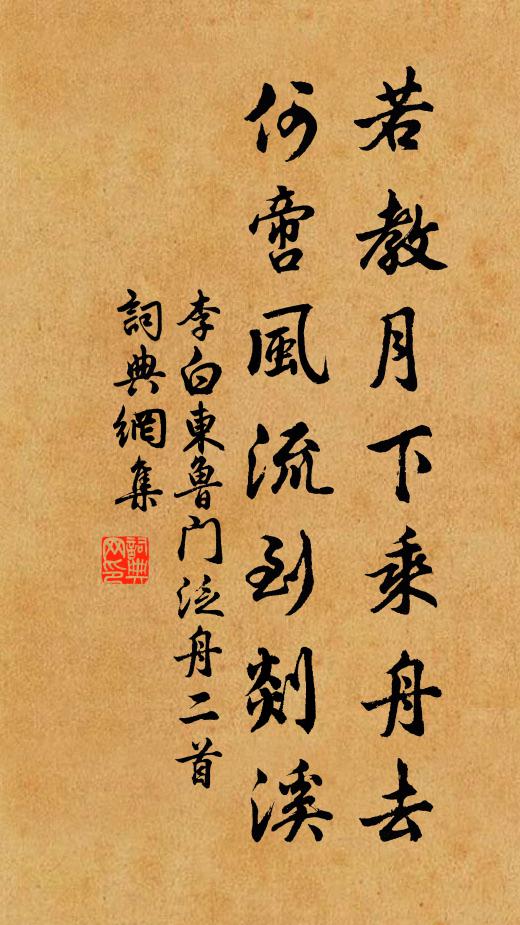 若教月下乘舟去
何啻風流到剡溪
李白東魯門泛舟二首
詞典網集
詞典網印